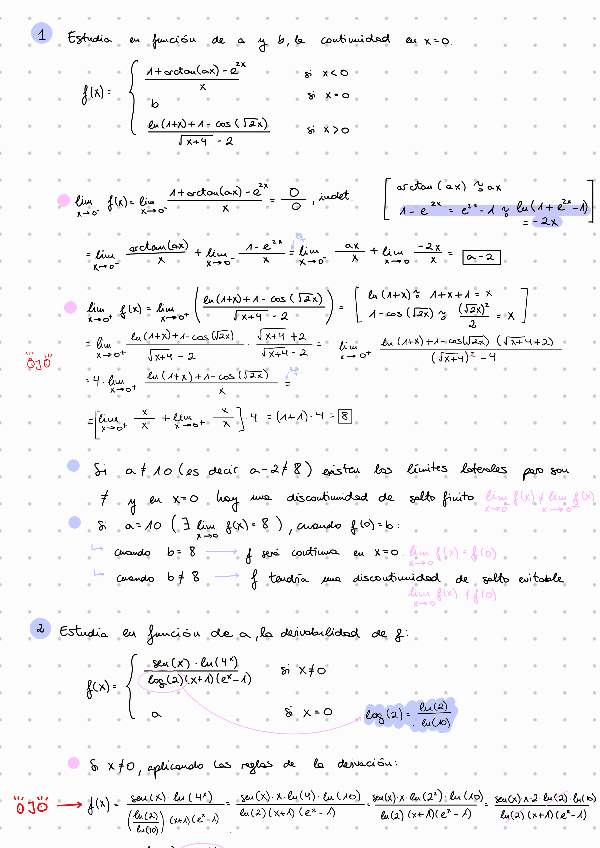 1 Estudia en función de a y b, la continuidad en x=0.
f(x) = { (1+arctan(ax) - e^{2x})/x si x<0
b si x=0
(ln(1+x)+1-cos(√2x))/(√(x+4) - 2) si x>0
lim_{x→0⁻} f(x) = lim_{x→0⁻} (1+arctan(ax) - e^{2x})/x = 0/0, indet. [arctan(ax) ≈ ax
1-e^{2x} = e^{2x}-1 ≈ ln(1+e^{2x}-1)
= -2x]
= lim_{x→0⁻} arctan(ax)/x + lim_{x→0⁻} (1-e^{2x})/x = lim_{x→0⁻} ax/x + lim_{x→0} -2x/x = a-2
lim_{x→0⁺} f(x) = lim_{x→0⁺} ((ln(1+x)+1-cos(√2x))/(√(x+4) - 2)) = [ln(1+x) ≈ 1+x+1 = x
1-cos(√2x) ≈ (√2x)²/2 = x]
= lim_{x→0⁺} (ln(1+x)+1-cos(√2x))/(√(x+4) - 2) · (√(x+4)+2)/(√(x+4) - 2) = lim_{x→0⁺} (ln(1+x)+1-cos(√2x) (√(x+4)+2))/((√(x+4))² - 4)
OJO
= 4· lim_{x→0⁺} (ln(1+x)+1-cos(√2x))/x =
= [lim_{x→0⁺} x/x + lim_{x→0⁺} x/x]·4 = (1+1)·4 = 8
Si a≠10 (es decir a-2≠8) existen los límites laterales pero son
≠ y en x=0 hay una discontinuidad de salto finito lim_{x→0⁻} f(x) ≠ lim_{x→0⁺} f(x)
Si a=10 (∃ lim_{x→0} f(x) = 8), cuando f(0)=b:
↳ cuando b=8 → f será continua en x=0. lim_{x→0} f(x) = f(0)
↳ cuando b≠8 → f tendría una discontinuidad de salto evitable
lim_{x→0} f(x) ≠ f(0)
2 Estudia en función de a, la derivabilidad de f:
f(x) = { (sen(x)·ln(4ˣ))/(log(2)(x+1)(eˣ-1)) si x≠0
a si x=0 log(2) = ln(2)/ln(10)
Si x≠0, aplicando las reglas de la derivación:
OJO → f(x) = (sen(x)·ln(4ˣ))/((ln(2)/ln(10))·(x+1)(eˣ-1)) = (sen(x)·x·ln(4)·ln(10))/(ln(2)(x+1)(eˣ-1)) = (sen(x)·x·ln(2²)·ln(10))/(ln(2)(x+1)(eˣ-1)) = (sen(x)·x·2·ln(2)·ln(10))/(ln(2)(x+1)(eˣ-1))